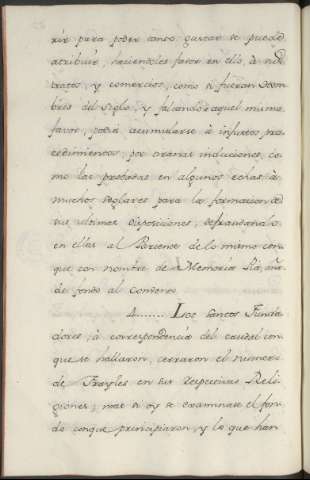 rir para poder tanto gastar se puede
atribuir, haciendoles favor en ello, à sus
tratos, y comercios, como si fueran Hom-
bres del Siglo, y faltando aquel mismo
favor, podrà acumularse à injustos pro-
cedimientos, por varias inducciones, co-
mo las practadas en algunos echas, à
muchos seglares para la formacion de
sus ultimas Disposiciones, defraudandolo
en ellas al Pariente de lo mismo con-
que con nombre de Memoria Pia, aña-
de fondo al Convento.
4...... Los santos Funda-
dores, à correspondencia del caudal con
que se hallaron, cerraron el numero
de Frayles en sus respectivas Reli-
giones; mas si oy se examinase el fon-
do conque principiaron, y lo que han